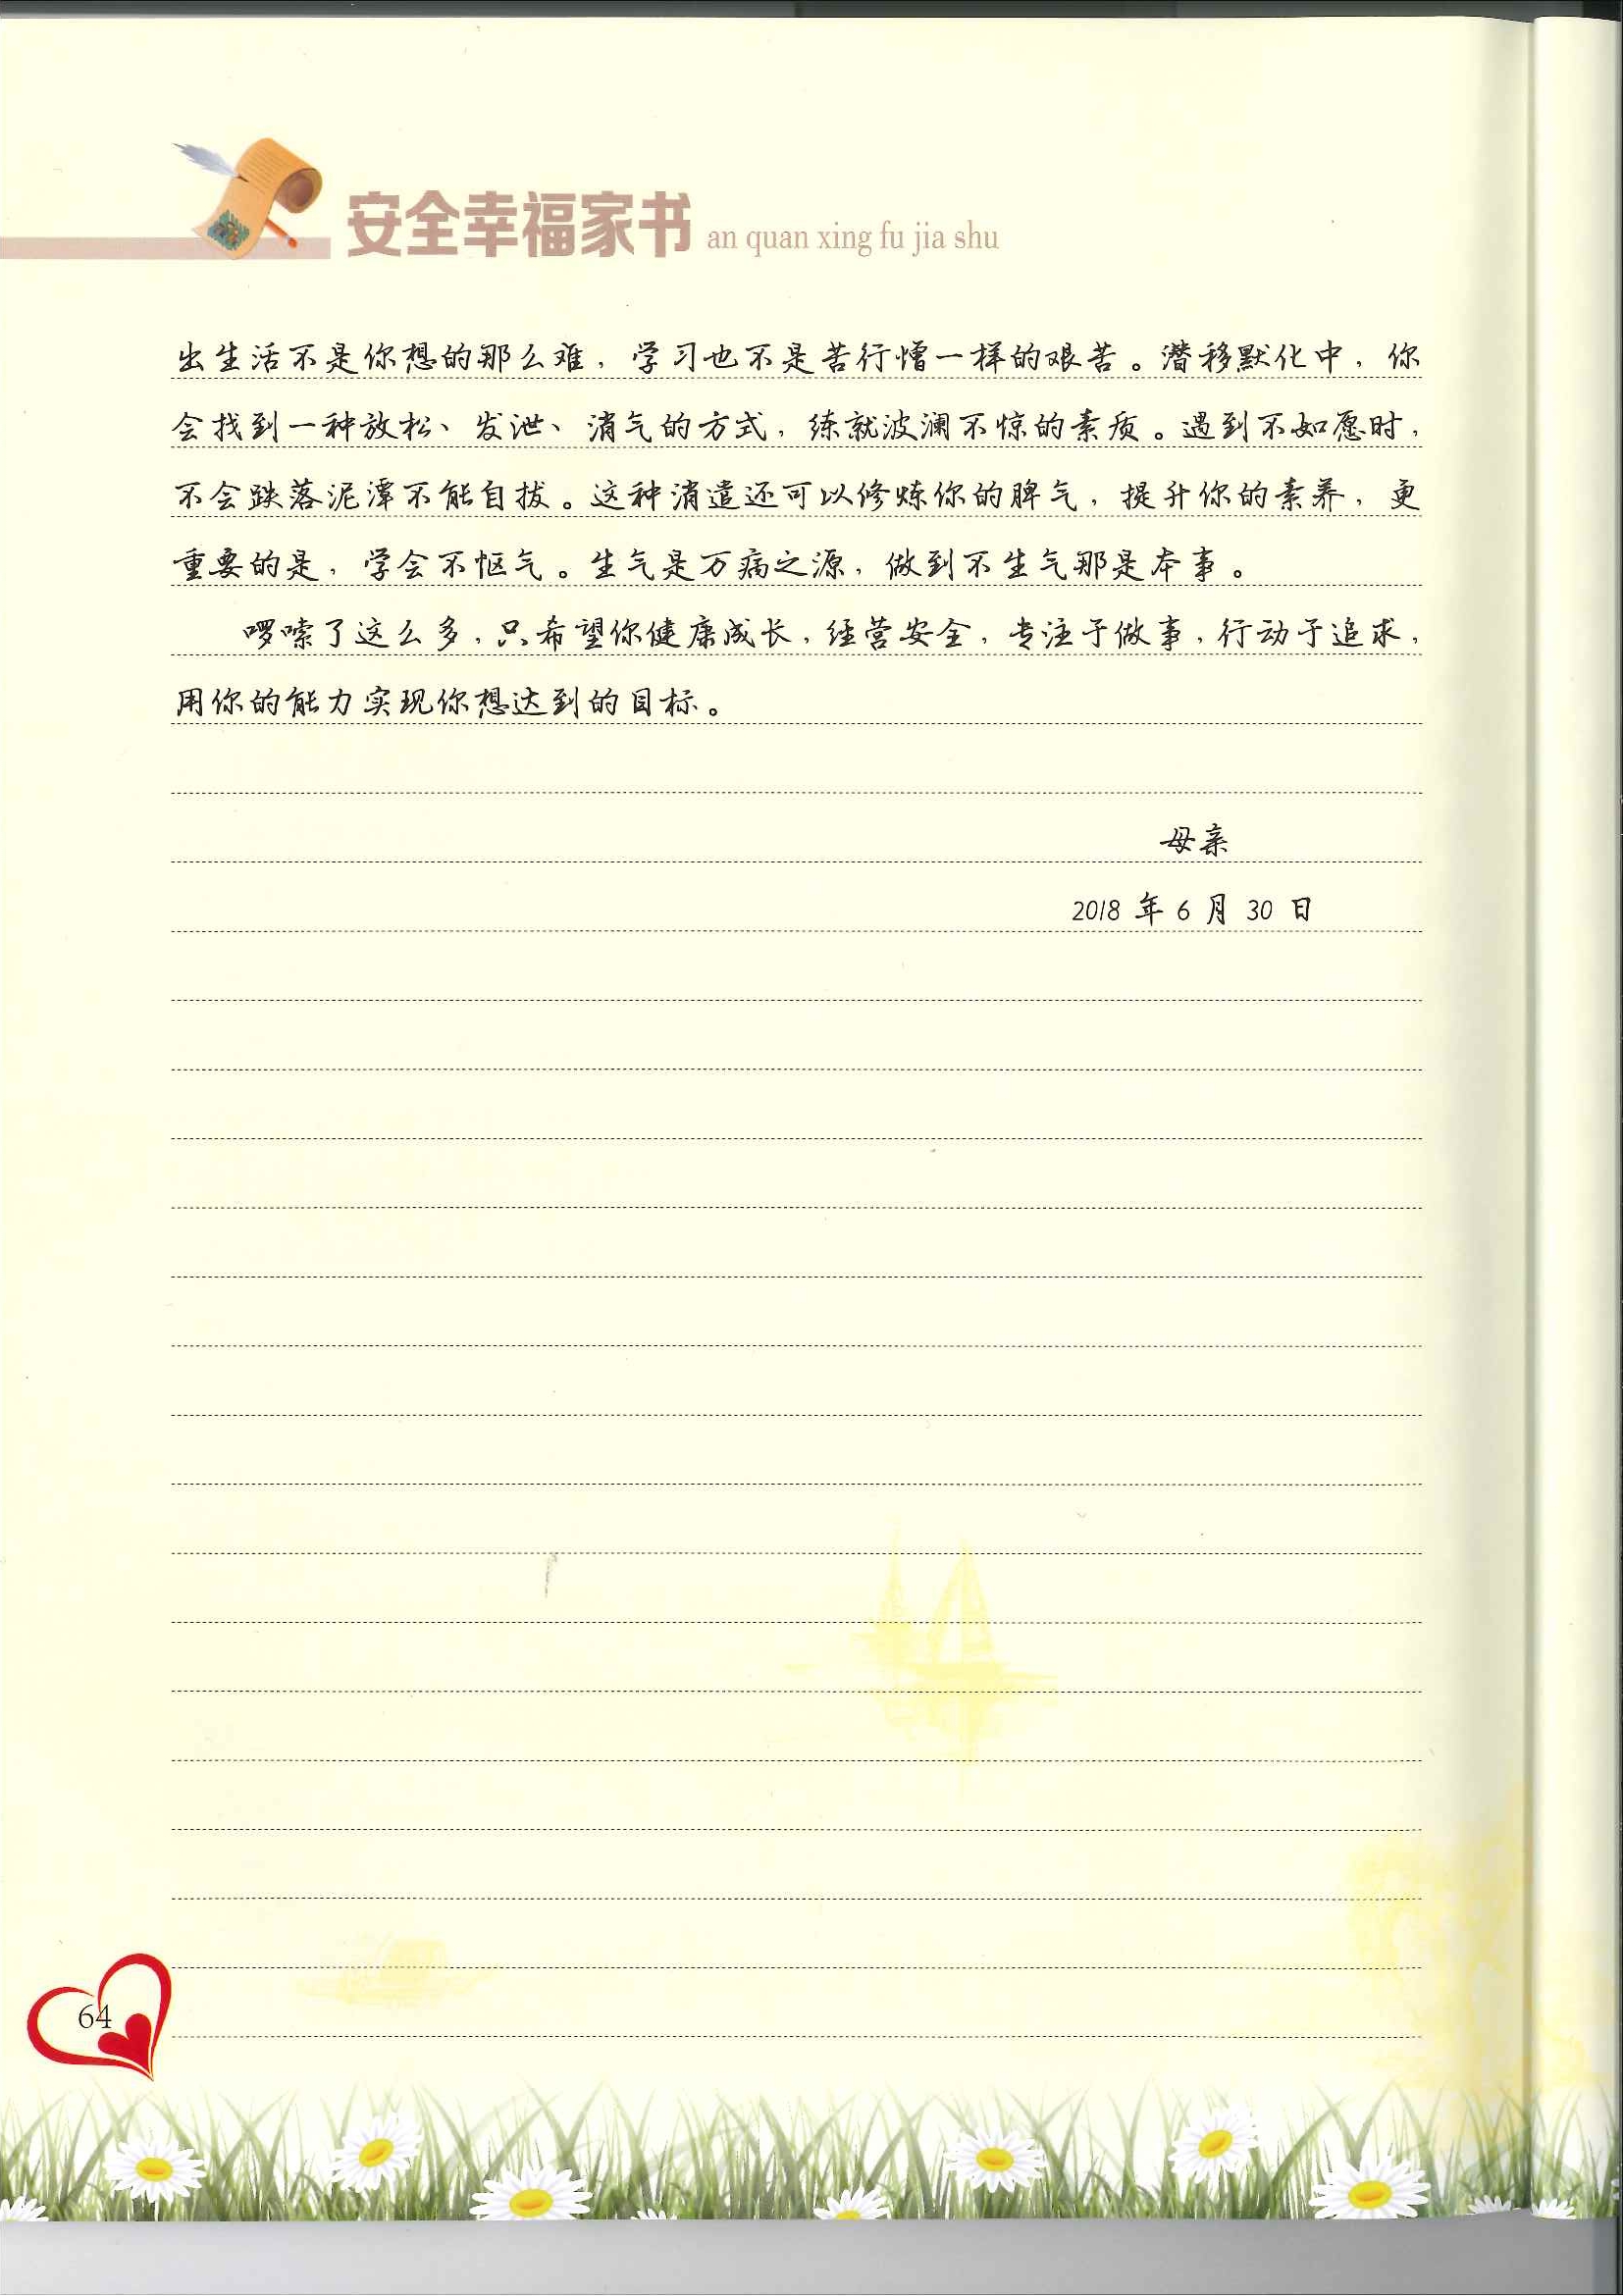 安全幸福家书 an quan xing fu jia shu
出生活不是你想的那么难，学习也不是苦行憎一样的艰苦。潜移默化中，你
会找到一种放松、发泄、消气的方式，练就波澜不惊的素质。遇到不如愿时，
不会跌落泥潭不能自拔。这种消遣还可以修炼你的脾气，提升你的素养，更
重要的是，学会不怄气。生气是万病之源，做到不生气那是本事。
啰嗦了这么多，只希望你健康成长，经营安全，专注于做事，行动于追求，
用你的能力实现你想达到的目标。
母亲
2018 年 6 月 30 日
64